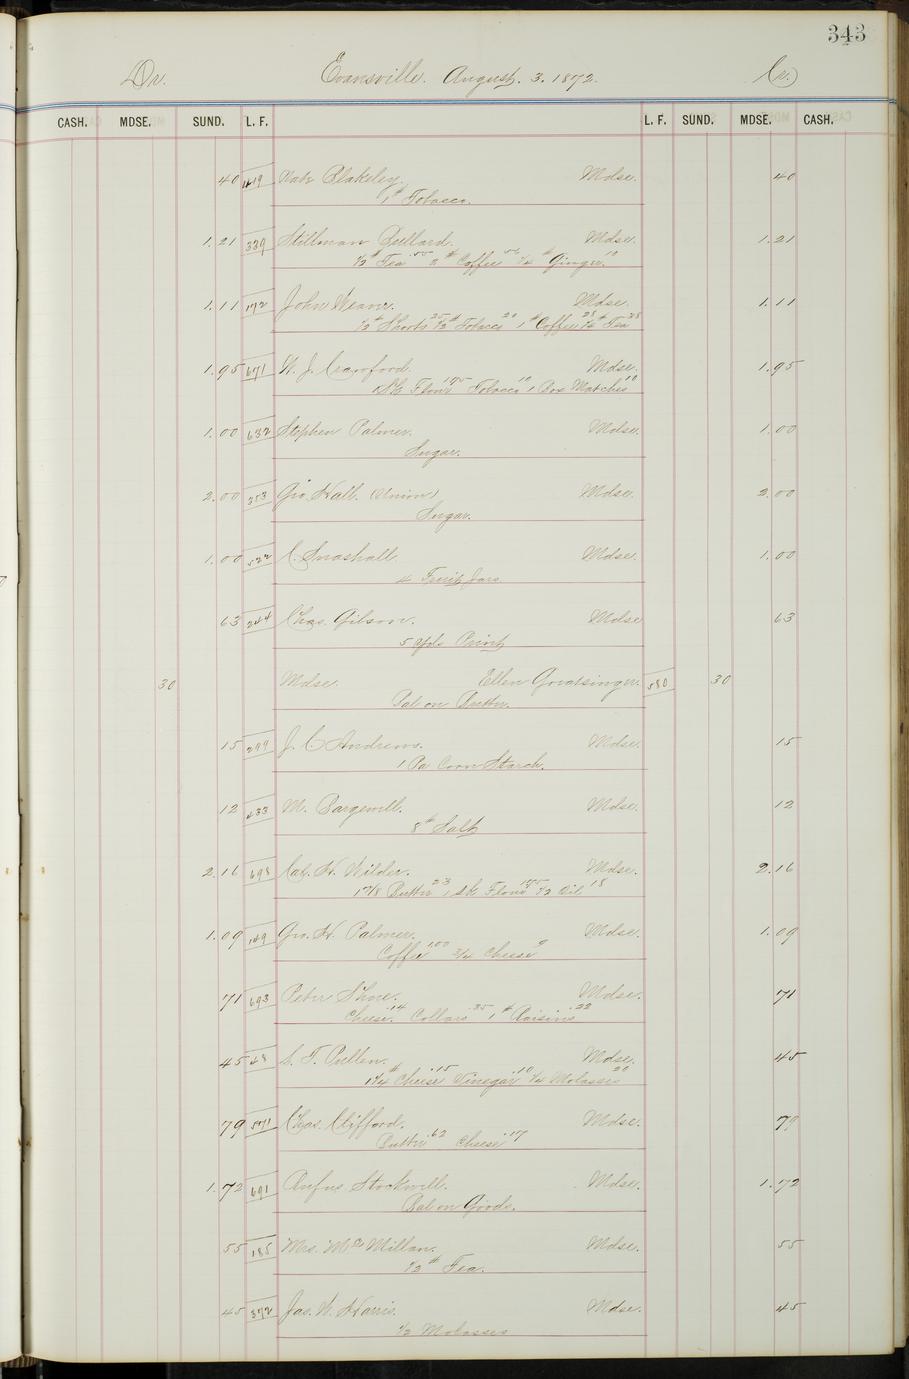 343
Dr. Evansville. August. 3. 1872. Cr.
CASH. MDSE. SUND. L. F. L. F. SUND. MDSE. CASH.
40 Blakeley. Mdse. 40
1# Tobacco.
1.21 339 Stillman Bullard. Mdse. 1.21
1/2# Tea Coffee 1/4# Ginger 10
1.11 172 John Weaver. Mdse. 1.11
Shorts 25 1/2# Tobacco 20 1# Coffee 28 Tea 38
1.95 671 W. J. Crawford. Mdse. 1.95
1 Sk Flour 175 Tobacco 10 1 Box Matches 10
1.00 632 Stephen Palmer. Mdse. 1.00
Sugar.
2.00 353 Geo. Hall. (Union) Mdse. 2.00
Sugar.
1.00 522 C. Snashall Mdse. 1.00
4 Fruit Jars
63 244 Chas. Gibson. Mdse 63
5 Yds Print
30 Mdse. Ellen 580 30
Bal on Butter.
15 299 J. C. Andrews. Mdse. 15
1 Pa Corn Starch.
12 433 M. Mdse. 12
8# Salt
2.16 698 Cal. H. Wilder. Mdse. 2.16
1 7/8 Butter 23 1 Sk Flour 175 1/2 Oil 18
1.09 149 Geo. H. Palmer. Mdse. 1.09
Coffee 1.00 3/4 Cheese 9
71 693 Peter Shore. Mdse. 71
Cheese .14 Collars .35 1# Raisins .22
45 48 S. T. Pullen. Mdse. 45
1 1/4# Cheese .15 Vinegar .10 1/4 Molasses 20
79 571 Chas. Clifford. Mdse. 79
Butter .62 Cheese .17
1.72 691 Rufus Stockwell. Mdse. 1.72
Bal on Goods.
55 185 Mrs. McMillan. Mdse. 55
1/2# Tea.
45 372 Jas. W. Harris. Mdse. 45
1/2 Molasses